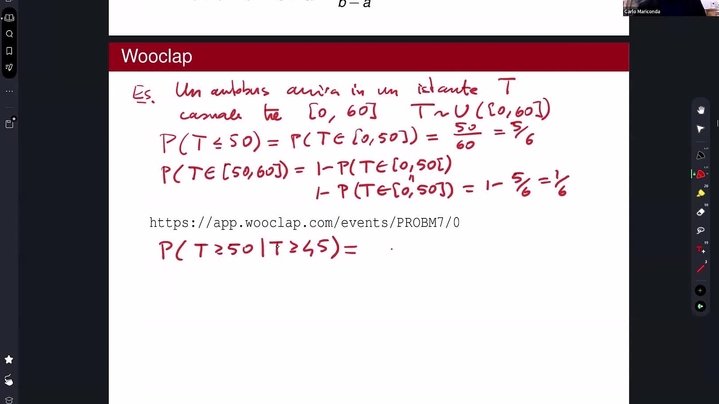 b − a
Carlo Mariconda
Wooclap
Es. Un autobus arriva in un istante T
casuale tra [0, 60] T ~ U([0,60])
P(T ≤ 50) = P(T ∈ [0,50]) = 50/60 = 5/6
P(T ∈ [50,60]) = 1 - P(T ∈ [0,50[)
"
1 - P(T ∈ [0,50]) = 1 - 5/6 = 1/6
https://app.wooclap.com/events/PROBM7/0
P( T ≥ 50 | T ≥ 45) =